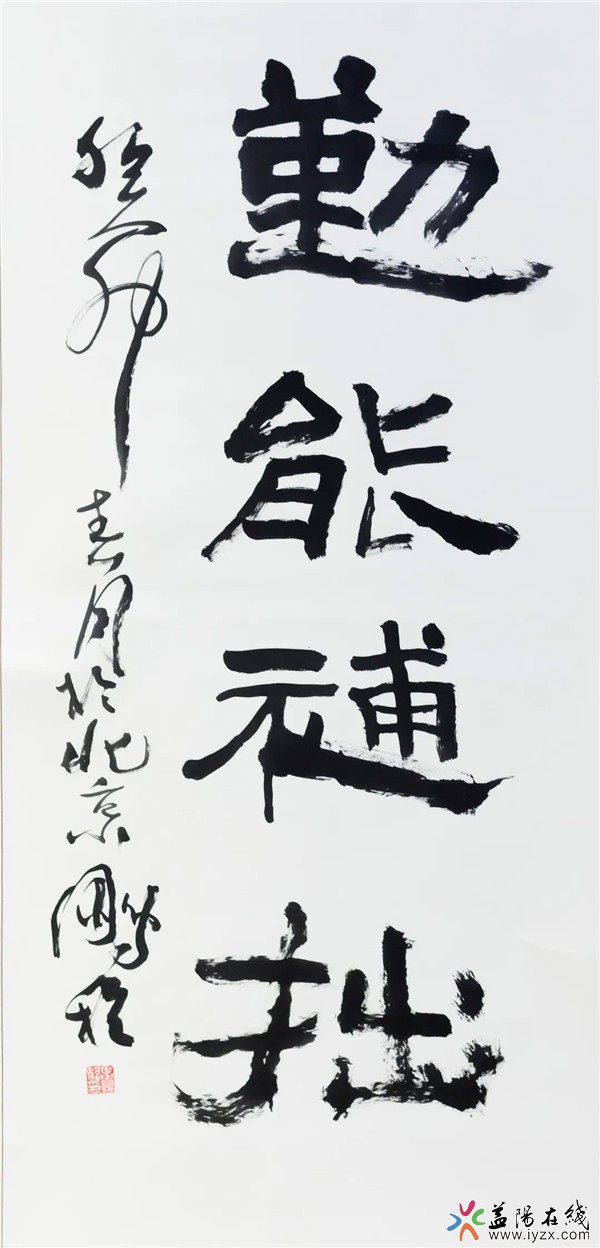 勤能補拙
春月於北京 鵬程
益陽在綫
www.iyzx.com